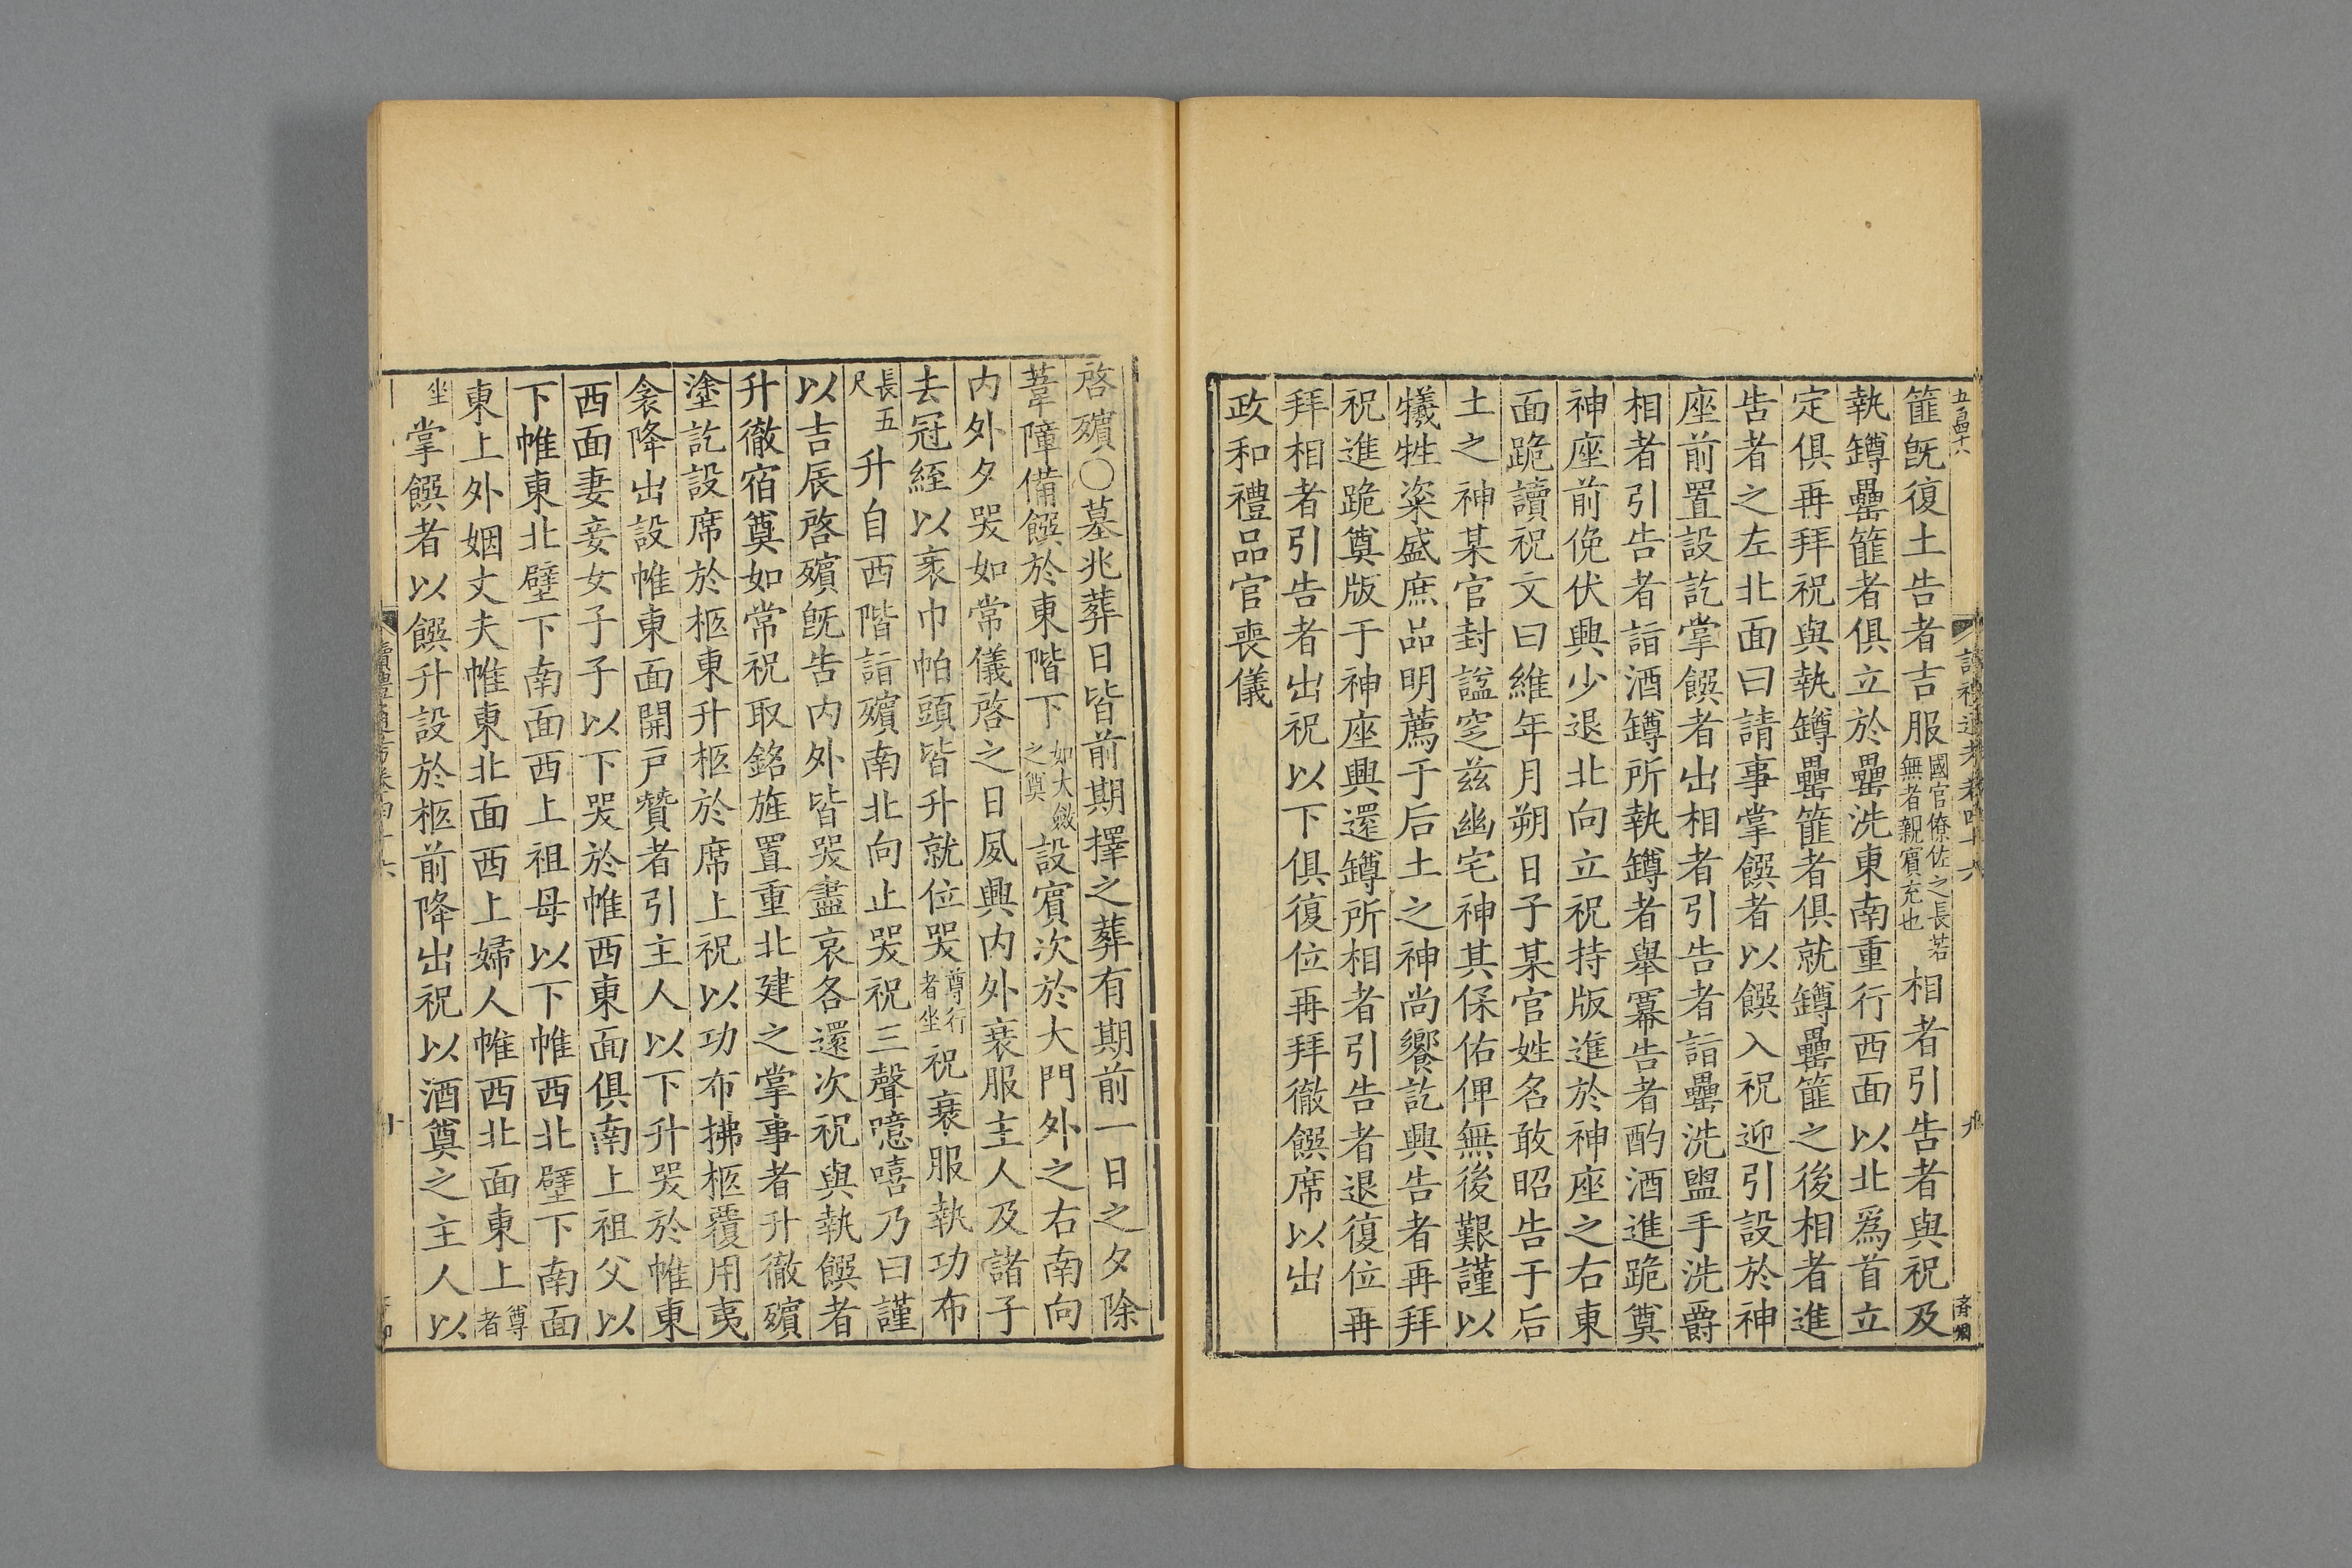 篚旣復土告者吉服國官僚佐之長若無者親賓充也相者引告者與祝及
執罇罍篚者俱立於罍洗東南重行西面以北爲首立
定俱再拜祝與執罇罍篚者俱就罇罍篚之後相者進
告者之左北面曰請事掌饌者以饌入祝迎引設於神
座前置設訖掌饌者出相者引告者詣罍洗盥手洗爵
相者引告者詣酒罇所執罇者舉冪告者酌酒進跪奠
神座前俛伏興少退北向立祝持版進於神座之右東
面跪讀祝文曰維年月朔日子某官姓名敢昭告于后
土之神某官封諡窆兹幽宅神其保佑俾無後艱謹以
犧牲粢盛庶品明薦于后土之神尚饗訖興告者再拜
祝進跪奠版于神座興還罇所相者引告者退復位再
拜相者引告者出祝以下俱復位再拜徹饌席以出
政和禮品官喪儀
啓殯○墓兆葬日皆前期擇之葬有期前一日之夕除
葦障備饌於東階下如大斂之奠設賓次於大門外之右南向
内外夕哭如常儀啓之日夙興内外衰服主人及諸子
去冠絰以衺巾帕頭皆升就位哭尊行者坐祝衰服執功布
長五尺升自西階詣殯南北向止哭祝三聲噫嘻乃曰謹
以吉辰啓殯旣告内外皆哭盡哀各還次祝與執饌者
升徹宿奠如常祝取銘旌置重北建之掌事者升徹殯
塗訖設席於柩東升柩於席上祝以功布拂柩覆用夷
衾降出設帷東面開戸贊者引主人以下升哭於帷東
西面妻妾女子子以下哭於帷西東面俱南上祖父以
下帷東北壁下南面西上祖母以下帷西北壁下南面
東上外姻丈夫帷東北面西上婦人帷西北面東上尊者
坐掌饌者以饌升設於柩前降出祝以酒奠之主人以